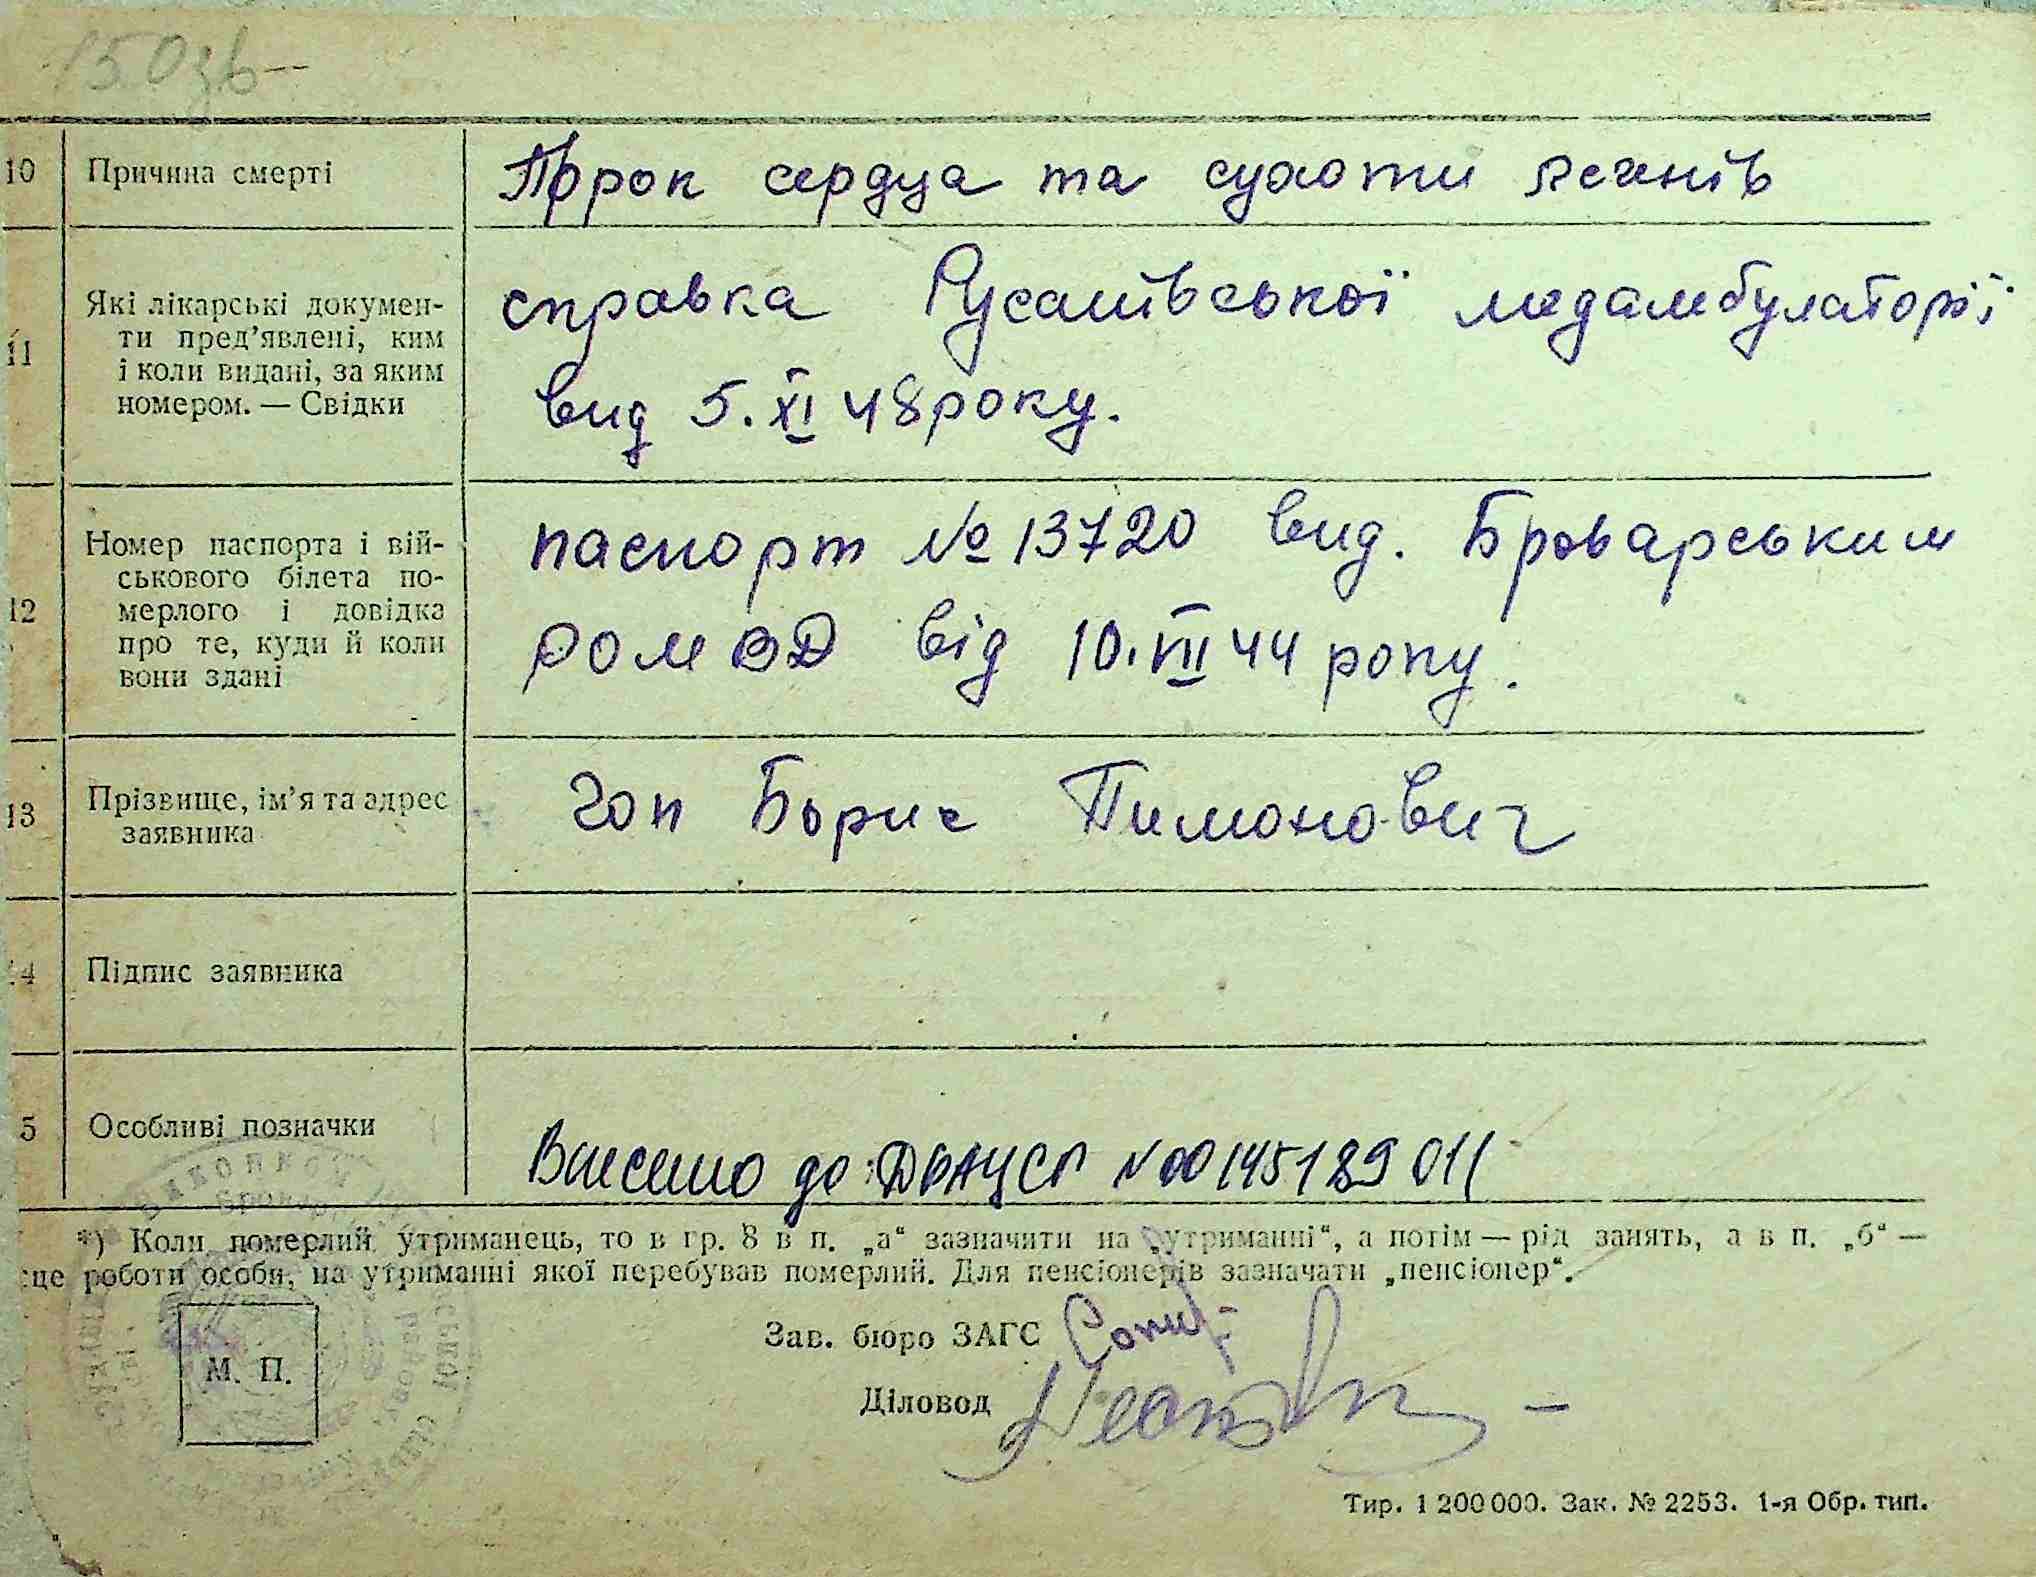 10 Причина смерті
Порок сердца та сухоти легенів
11 Які лікарські докумен-
ти пред’явлені, ким
і коли видані, за яким
номером. — Свідки
справка Русанівської медамбулаторії
вид 5.XI 48 року.
12 Номер паспорта і вій-
ськового білета по-
мерлого і довідка
про те, куди й коли
вони здані
паспорт № 13720 вид. Броварським
РОМВД від 10.VII 44 року.
13 Прізвище, ім’я та адрес
заявника
Гоп Борис Пимонович
14 Підпис заявника
5 Особливі позначки
Внесено до ДРАЦСГ №00145189011
*) Коли померлий утриманець, то в гр. 8 в п. „а“ зазначити на „утриманні“, а потім — рід занять, а в п. „б“ —
це роботи особи, на утриманні якої перебував померлий. Для пенсіонерів зазначати „пенсіонер“.
М. П.
Зав. бюро ЗАГС
Діловод
Тир. 1 200 000. Зак. № 2253. 1-я Обр. тип.